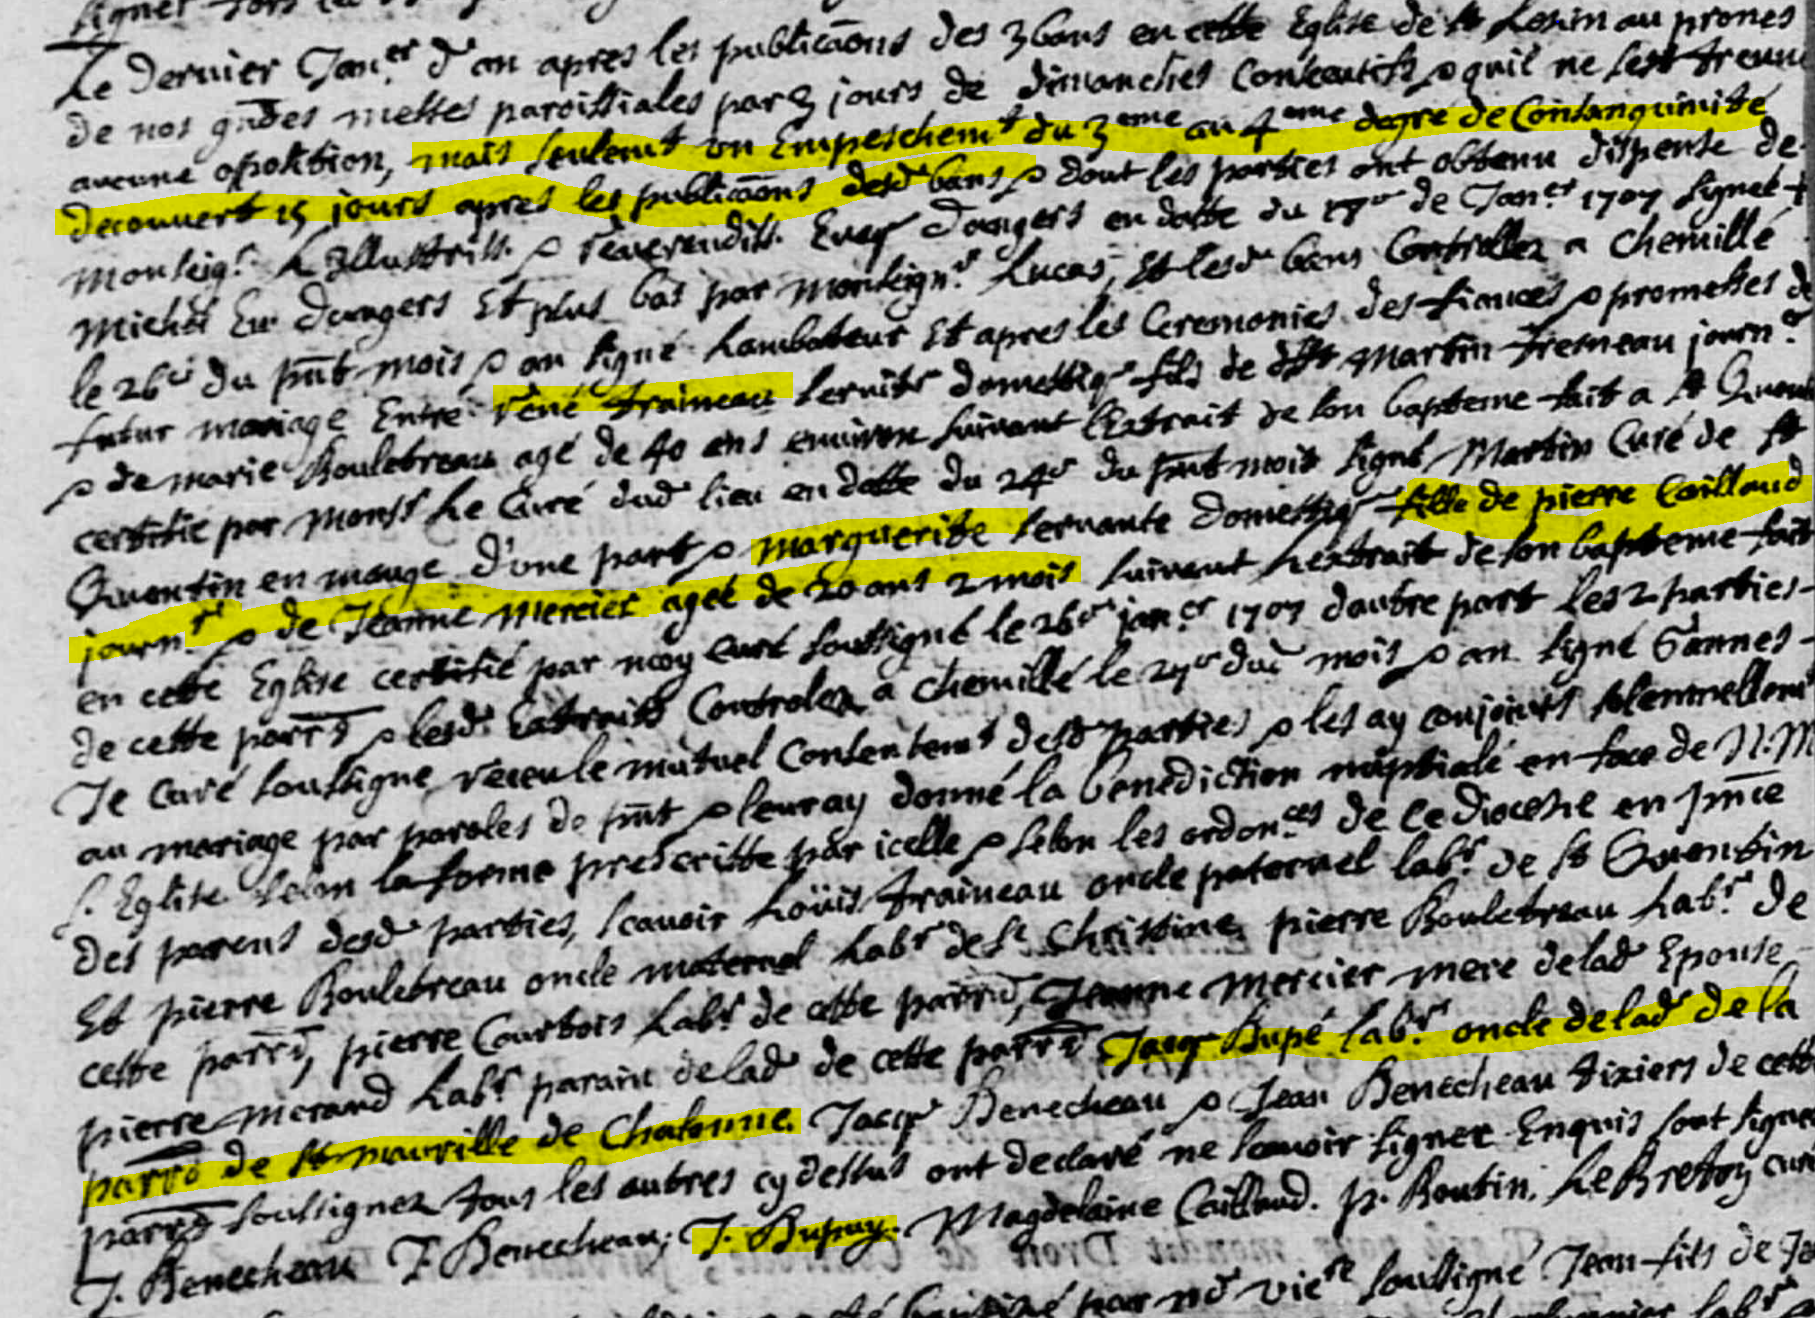 signer
Le dernier Jan.er d. an apres les publicãons des 3 bans en cette Eglise de st Lezin au prones
de nos gndes messes paroissiales par 3 jours de dimanches consecutifs & quil ne sest treuué
aucune oposition, mais seulemt un Empeschemt du 3eme au 4eme degre de Consanguinité
decouvert 15 jours apres les publicãons desd. bans & dont les parties ont obtenu dispense de
monseigr. L'Illustriss. & reverendiss. Eveq d'angers en datte du 17e de Jan.er 1707 signet +
michel Ev. dangers Et plus bas par monseignr. Lucas, Et lesd. bans Controllez a chemillé
le 26e du pñt mois & an signé Lambateur Et apres les Ceremonies des fiances & promesses de
futur mariage Entre rené fraineau servitr domestiq fils de dft martin fresneau journ.er
& de marie Boulebreau agé de 40 ans environ suivant L'Extrait de son bapteme fait a st Quen
certifié par monsr Le Curé dud. lieu en datte du 24e du pñt mois signé Martin Curé de st
Quentin en mauge d'une part & marguerite servante domestiq fille de pierre Caillaud
journ.r & de Jeanne mercier ageé de 20 ans 2 mois suivant Lextrait de son bapteme fait
en cette Eglise certifié par moy curé soussigné le 26e jan.er 1707 dautre part les 2 parties
de cette parrs & lesd. Extraits Controlez a chemillé le 27e dud. mois & an signé Gannes
Je Curé soussigne receu le mutuel Consentemt desd. parties & les ay conjoints solemnellemt
au mariage par paroles de pñt & leur ay donné la benediction nuptiale en face de N. M
s. Eglise selon la forme prescritte par icelle & selon les ordon.ces de ce diocese en pñce
des parens desd. parties, scavoir Loüis fraineau oncle paternel labr. de st Quentin
Et pierre Boulebreau oncle maternel Labr de ste Christine, pierre Boulebreau Labr. de
cette parrs, pierre Courbois Labr. de cette parrs, Jeanne mercier mere de lad. Epouse
pierre merand Labr parain de lad. de cette parrs Jacq Dupé labr. oncle de lad. de la
parrs de st maurille de Chalonne. Jacq Benecheau & Jean Benecheau tixiers de cette
parrs soussignez tous les autres cy dessus ont declaré ne scavoir signer Enquis sont signez
J. Benecheau J. Benecheau. J. Dupuy. Magdelaine Caillaud. p. Boutin. LeBreton curé
par nd. vic.re soussigné Jean fils de Je